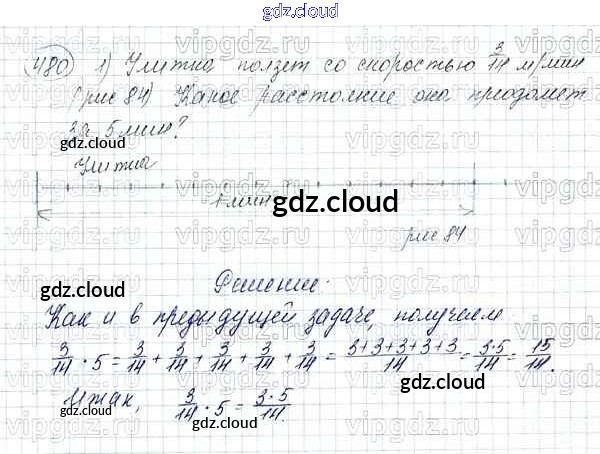 gdz.cloud
480 1) Улитка ползет со скоростью 3/14 м/мин
(рис 84) Какое расстояние она преодолеет
за 5 мин?
gdz.cloud
Улитка
1 мин
gdz.cloud
рис 84
Решение.
gdz.cloud
Как и в предыдущей задаче, получаем
3/14 · 5 = 3/14 + 3/14 + 3/14 + 3/14 + 3/14 = 3+3+3+3+3/14 = 3·5/14 = 15/14.
gdz.cloud
Итак, 3/14 · 5 = 3·5/14.
gdz.cloud
gdz.cloud